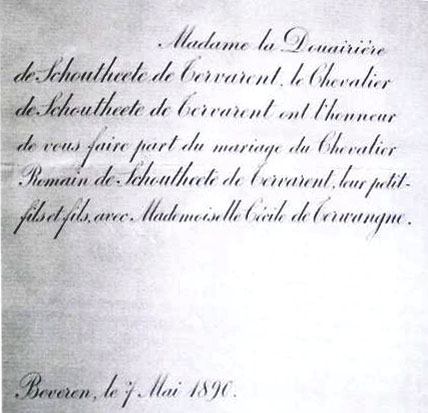 Madame la Douairière
de Schoutheete de Tervarent, le Chevalier
de Schoutheete de Tervarent ont l'honneur
de vous faire part du mariage du Chevalier
Romain de Schoutheete de Tervarent, leur petit-
fils et fils, avec Mademoiselle Cécile de Terwangne.
Beveren, le 7 Mai 1890.